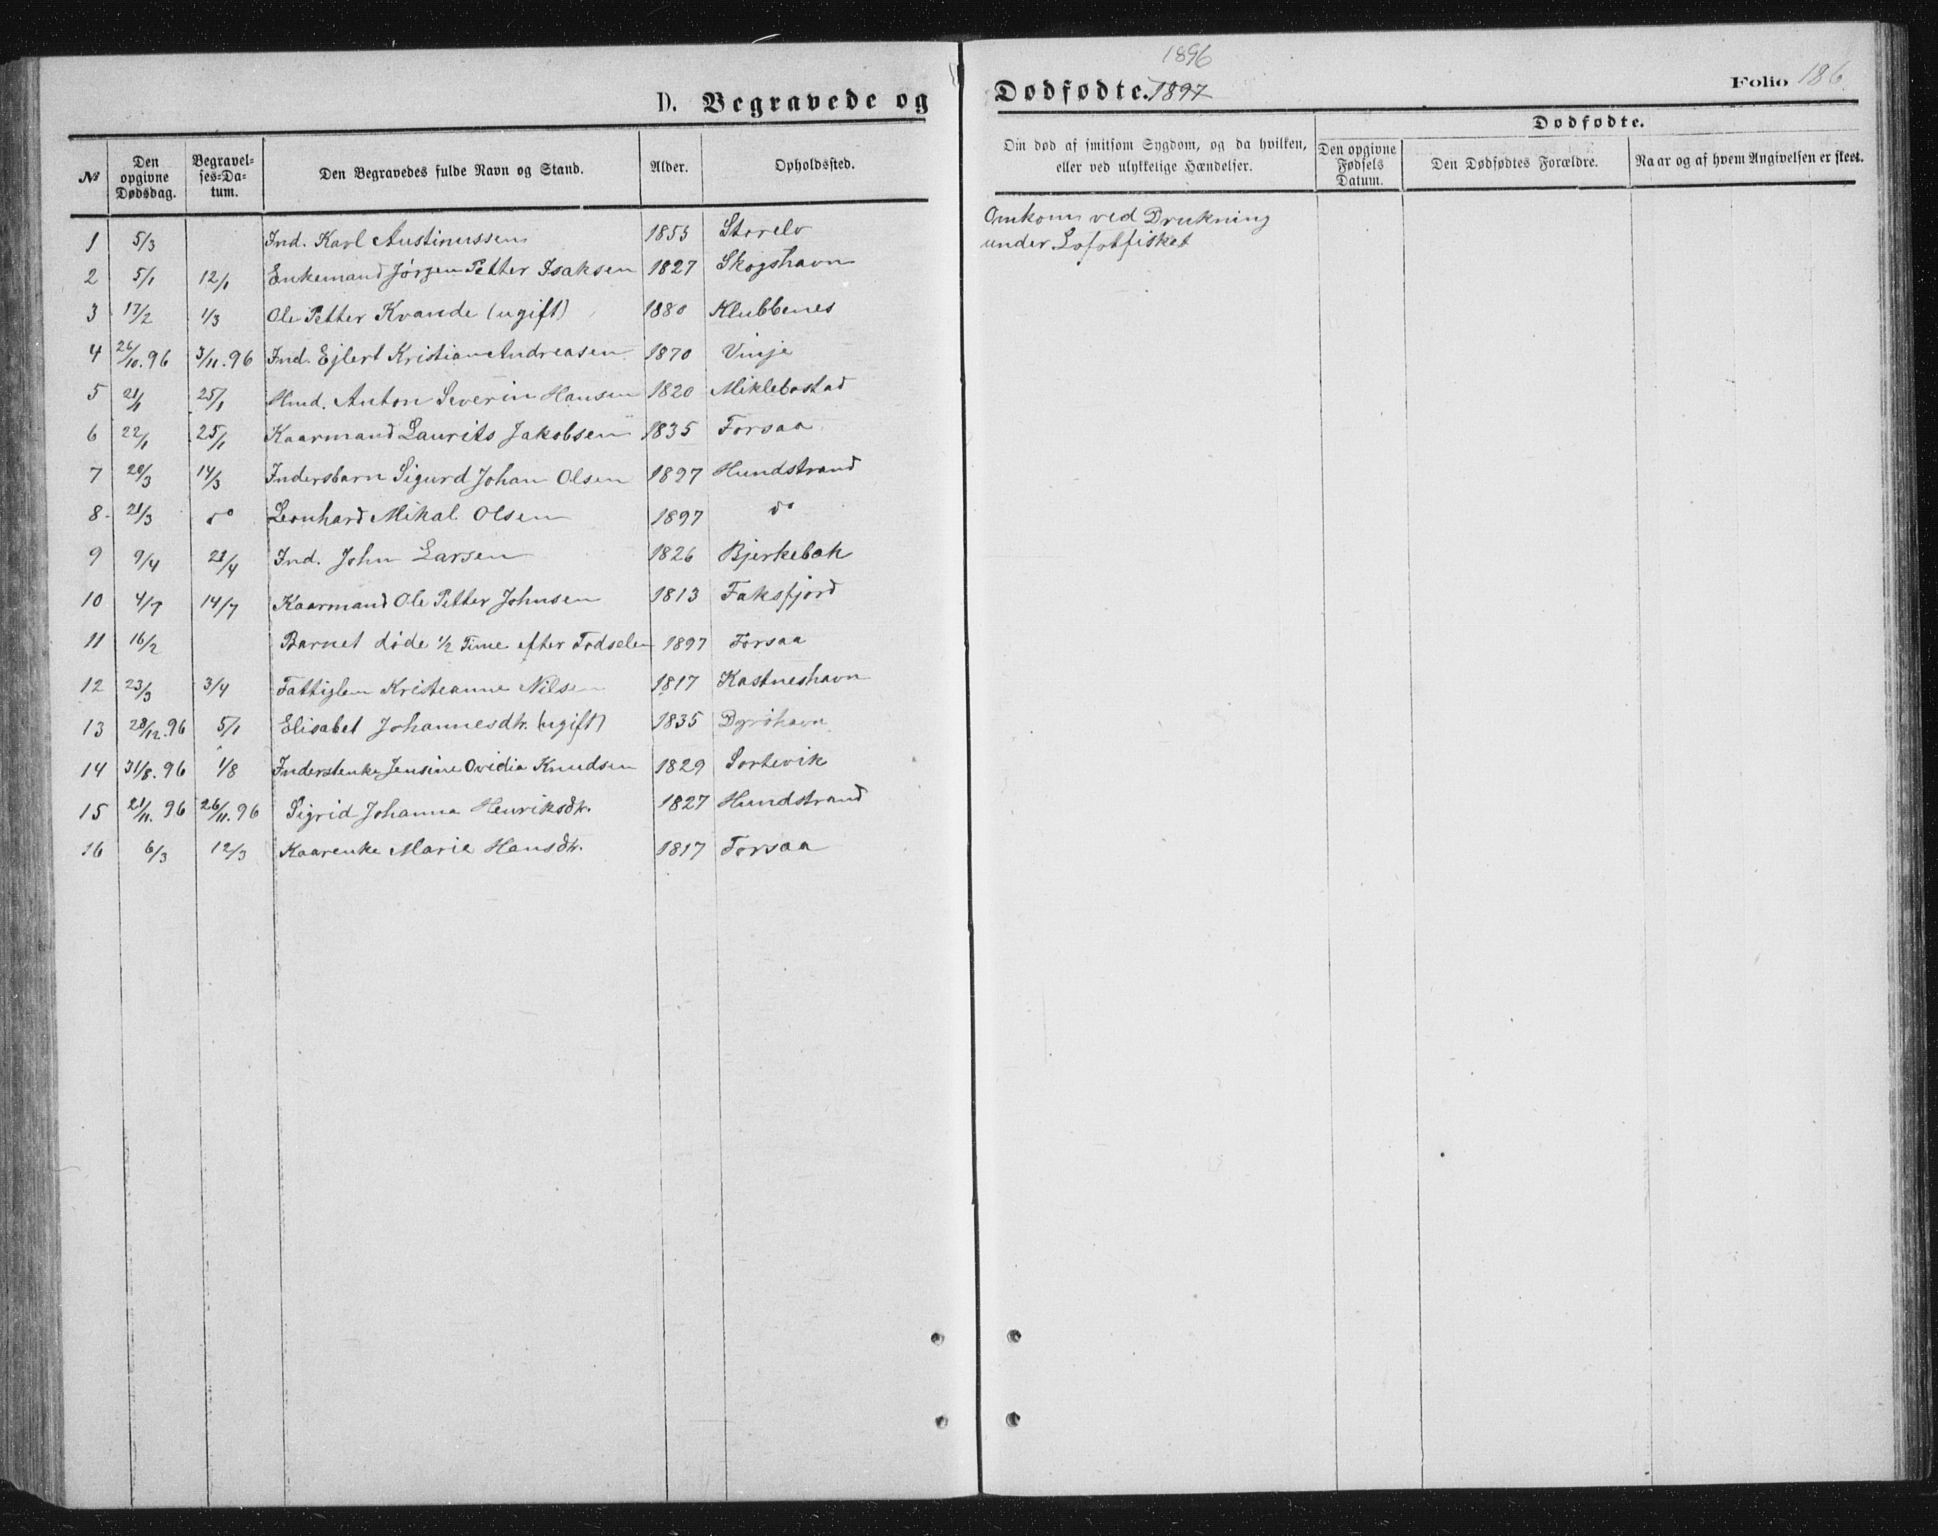 1896
D. Begravede og Dødfødte. 1897
Folio 186
№ | Den opgivne Dødsdag. | Begravelses-Datum. | Den Begravedes fulde Navn og Stand. | Alder. | Opholdssted. | Om død af smitsom Sygdom, og da hvilken, eller ved ulykkelige Hændelser. | Dødfødte. | Den opgivne Fødsels Datum. | Den Dødfødtes Forældre. | Naar og af hvem Angivelsen er skeet.
1 5/3 Ind. Karl Austinussen 1853 Storelv Omkom ved Drukning
under Lofotfisket
2 5/1 12/1 Enkemand Jørgen Petter Isaksen 1827 Skogshavn
3 17/2 1/3 Ole Petter Kvande (ugift) 1880 Klubbenes
4 26/10.96 3/11.96 Ind. Ejlert Kristian Andreasen 1870 Vinje
5 21/1 25/1 Anton Severin Hansen 1820 Miklebostad
6 22/1 25/1 Kaarmand Laurits Jakobsen 1835 Forsaa
7 20/3 14/3 Indersbarn Sigurd Johan Olsen 1897 Hundstrand
8 21/3 do Leonhard Mikal Olsen 1897 do
9 9/4 21/4 Ind. John Larsen 1826 Bjerkebak
10 4/7 14/7 Kaarmand Ole Petter Johnsen 1813 Faksfjord
11 16/2 Barnet døde 1/2 Time efter Fødselen 1897 Forsaa
12 23/3 3/4 Fattiglem Kristianne Nilsen 1817 Kastneshavn
13 28/12.96 5/1 Elisabet Johannesdtr. (ugift) 1835 Dyrøhavn
14 31/8.96 1/8 Indersenke Jensine Ovidia Knudsen 1829 Sortevik
15 21/11.96 26/11.96 Sigrid Johanna Henriksdtr. 1827 Hundstrand
16 6/3 12/3 Kaarenke Marie Hansdtr. 1817 Forsaa